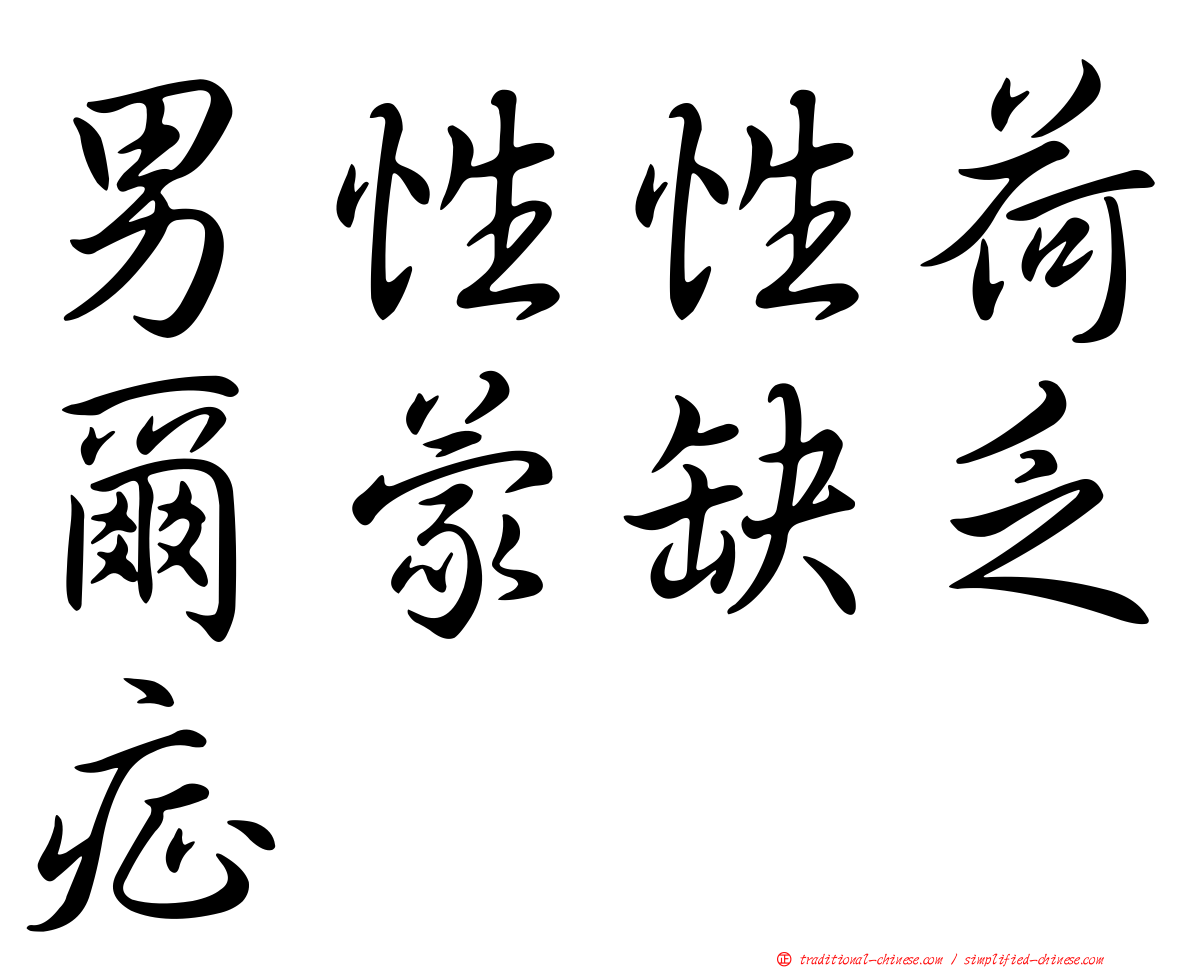 男性性荷
爾蒙缺乏
症
㊣ traditional-chinese.com / simplified-chinese.com